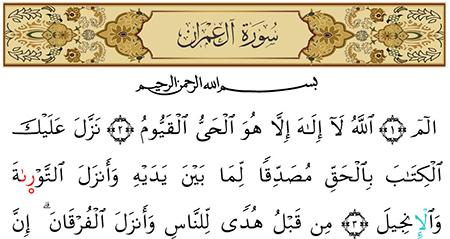 سُورَةُ آلِ عِمْرَان
بسم الله الرحمن الرحيم
الٓمٓ ﴿١﴾ اللَّهُ لَآ إِلَـٰهَ إِلَّا هُوَ الْحَىُّ الْقَيُّومُ ﴿٢﴾ نَزَّلَ عَلَيْكَ
الْكِتَـٰبَ بِالْحَقِّ مُصَدِّقًا لِّمَا بَيْنَ يَدَيْهِ وَأَنزَلَ التَّوْرَىٰةَ
وَالْإِنجِيلَ ﴿٣﴾ مِن قَبْلُ هُدًى لِّلنَّاسِ وَأَنزَلَ الْفُرْقَانَ ۗ إِنَّ